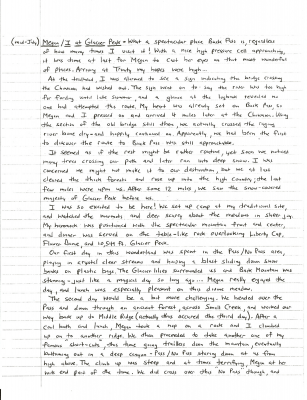 (mid-July) Megan / I at Glacier Peak - What a spectacular place Buck Pass is, regardless
of how many times I visit it! With a nice high pressure cell approaching,
it was time at last for Megan to cast her eyes on that most wonderful
of places. Arriving at Trinity my hopes were high...
At the trailhead, I was alarmed to see a sign indicating the bridge crossing
the Chiwawa had washed out. The sign went on to say the river was too high
for fording until late Summer, and a glance at the logbook revealed no
one had attempted the route. My heart was already set on Buck Pass, so
Megan and I pressed on and arrived 2 miles later at the Chiwawa. Using
the section of the old bridge still there, we actually crossed the raging
river bone dry - and happily continued on. Apparently, we had been the first
to discover the route to Buck Pass was still approachable.
It seemed as if the rest might be rather routine, yet soon we noticed
many trees crossing our path and later ran into deep snow. I was
concerned we might not make it to our destination, but we at last
cleared the thick forests and rose up into the high country; the last
few miles were upon us. After some 12 miles, we saw the snow-covered
majesty of Glacier Peak before us.
I was so excited to be here! We set up camp at my traditional site,
and watched the marmots and deer scurry about the meadows in sheer joy.
My hammock was positioned with the spectacular mountain front and center,
and dinner was served on the table-like rock overlooking Liberty Cap,
Flower Dome, and 10,541 ft. Glacier Peak.
Our first day in this wonderland was spent in the Pass / No Pass area,
playing in crystal clear streams and having a blast sliding down snow
banks on plastic bags. The Glacier lilies surrounded us and Buck Mountain was
stunning - just like a magical day so long ago... Megan really enjoyed the
day, and lunch was especially pleasant on this divine meadow.
The second day would be a bit more challenging. We headed over the
Pass and down through an ancient forest across Small Creek and worked our
way back up to Middle Ridge (actually this occurred the third day). After a
cool bath and lunch, Megan took a nap on a rock and I climbed
up on to another ridge. We then proceeded to take another one of my
famous short-cuts, this time going trailless down the mountain, eventually
bottoming out in a deep canyon - Pass / No Pass staring down at us from
high above. The climb up was steep and at times terrifying, Megan at her
wits end part of the time. We did cross over this No Pass though, and